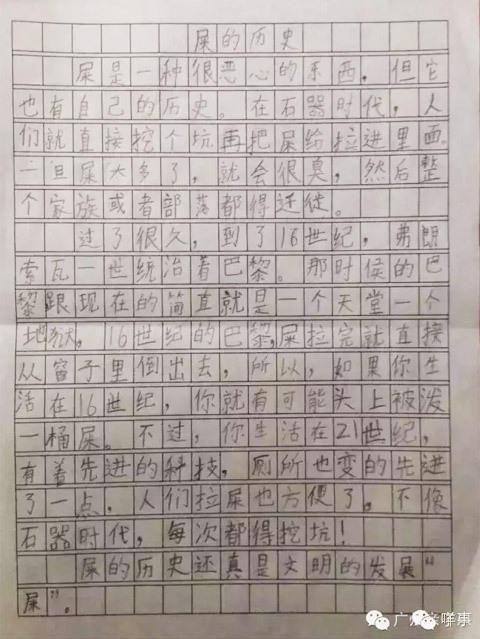 屎的历史
屎是一种很恶心的东西，但它
也有自己的历史。在石器时代，人
们就直接挖个坑再把屎给拉进里面。
一旦屎太多了，就会很臭，然后整
个家族或者部落都得迁徙。
过了很久，到了16世纪，弗朗
索瓦一世统治着巴黎。那时侯的巴
黎跟现在的简直就是一个天堂一个
地狱，16世纪的巴黎，屎拉完就直接
从窗子里倒出去，所以，如果你生
活在16世纪，你就有可能头上被泼
一桶屎。不过，你生活在21世纪，
有着先进的科技，厕所也变的先进
了一点，人们拉屎也方便了，不像
石器时代，每次都得挖坑！
屎的历史还真是文明的发展“
屎”。
广州亲咩事